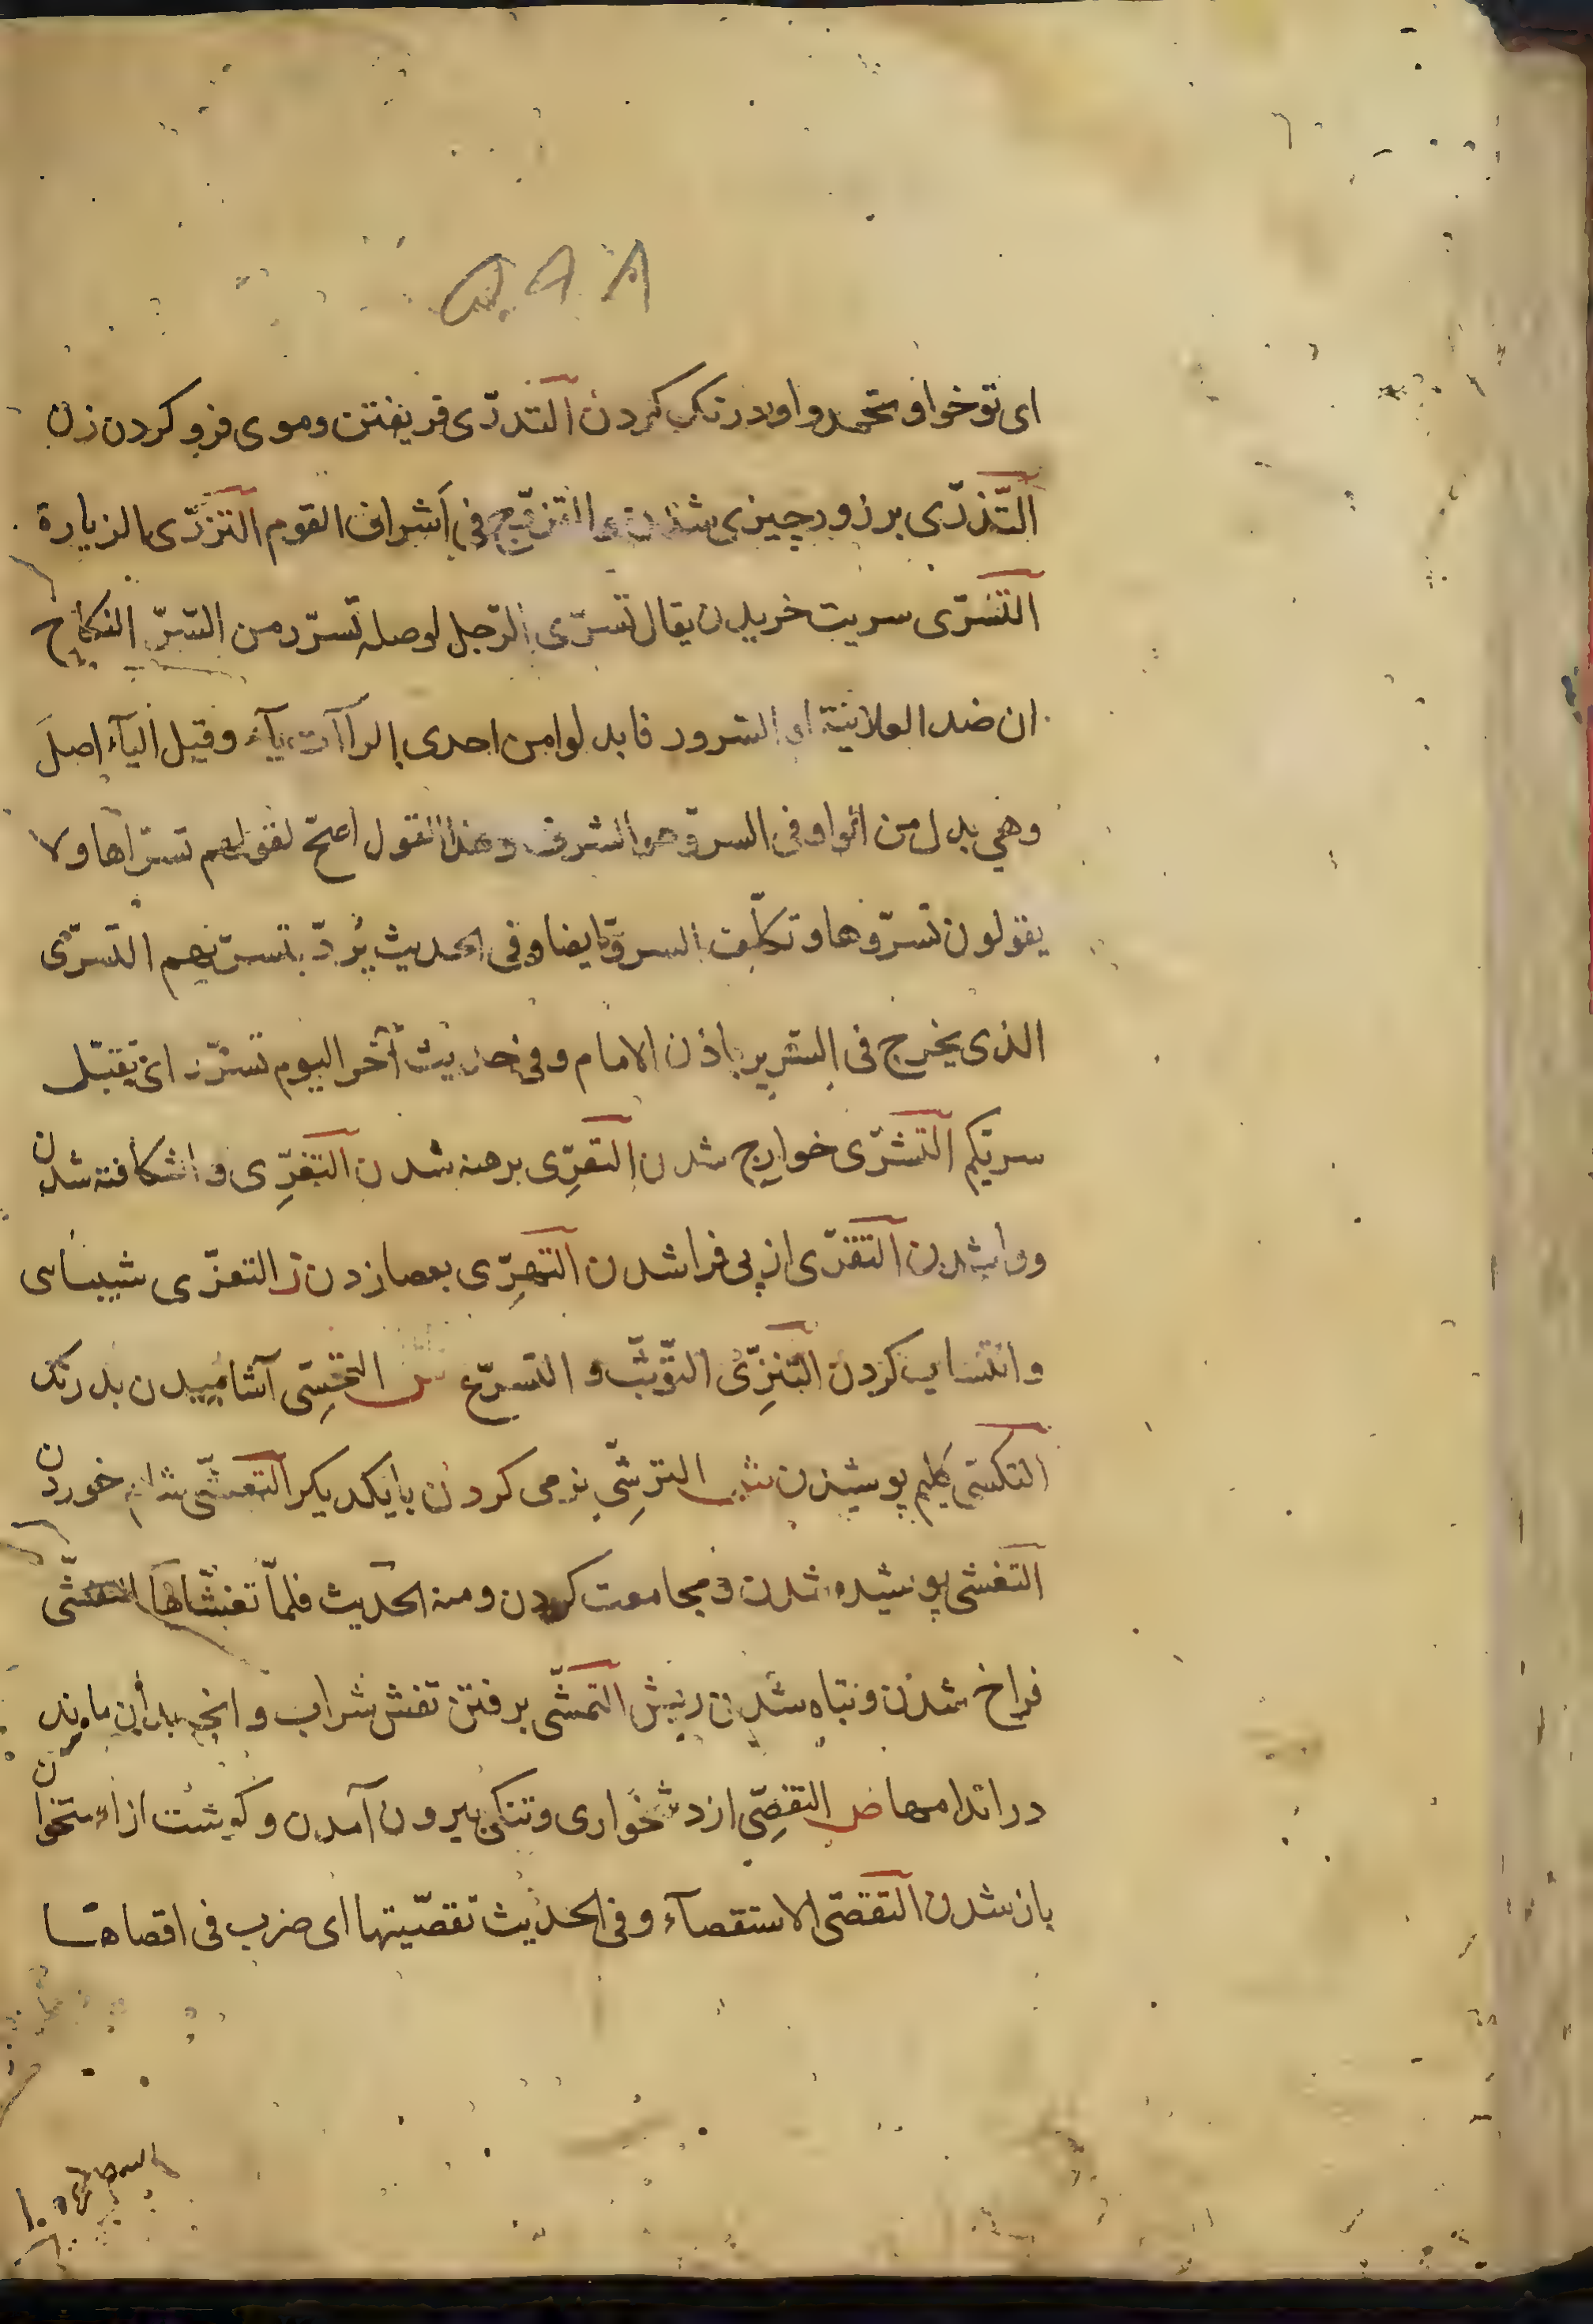 ای توخوا و تحمد واو درنک کردن التدرّی فریفتن وموی فرو کردن زن
التّذرّی بر زور چیزی شدن و التزوّج فی اشراف القوم التزرّی الزیارة
التسّرّی سریت خریدن یقال تسرّی الرّجل اوصله تسرّر من السّرّ النکاح
ان ضد العلانیة او السّرور فابدلوا من احدی الراآت یآء وقیل الیآء اصل
وهی بدل من الواو فی السرو هو الشرف وهذا القول اصحّ لقولهم تسرّاها ولا
یقولون تسرّوها وتکلّف السرو ایضا وفی الحدیث یُردّ بتسرّیهم التسرّی
الذی یخرج فی السّریر باذن الامام وفی حدیث آخر الیوم تسرّر ای یقتبّل
سریّکم التشرّی خوارج شدن التعرِّی برهنه شدن التفرِّی واشکافته شدن
ووا شدن التقرّی از پی فرا شدن التهرِّی بعصا زدن ز التعزّی شیبسای
وانتساب کردن التنزّی التوّثب و التسرّع س التحسّی آشامیدن بدرنک
التکسّی کلیم پوشیدن ش الترشّی نرمی کردن بایکدیکر التعشّی شام خوردن
التغشی پوشیده شدن و مجامعت کردن ومنه الحدیث فلمّا تغشّاها التفشّی
فراخ شدن وتباه شدن ریش التمشّی برفتن تفش شراب وانچ بدان ماند
در اندامها ص التفصّی از دشخواری وتنکی بیرون آمدن وکوشت از استخوان
باز شدن التقصّی الاستقصآء وفی الحدیث تقصّیتها ای ضرب فی اقصاها